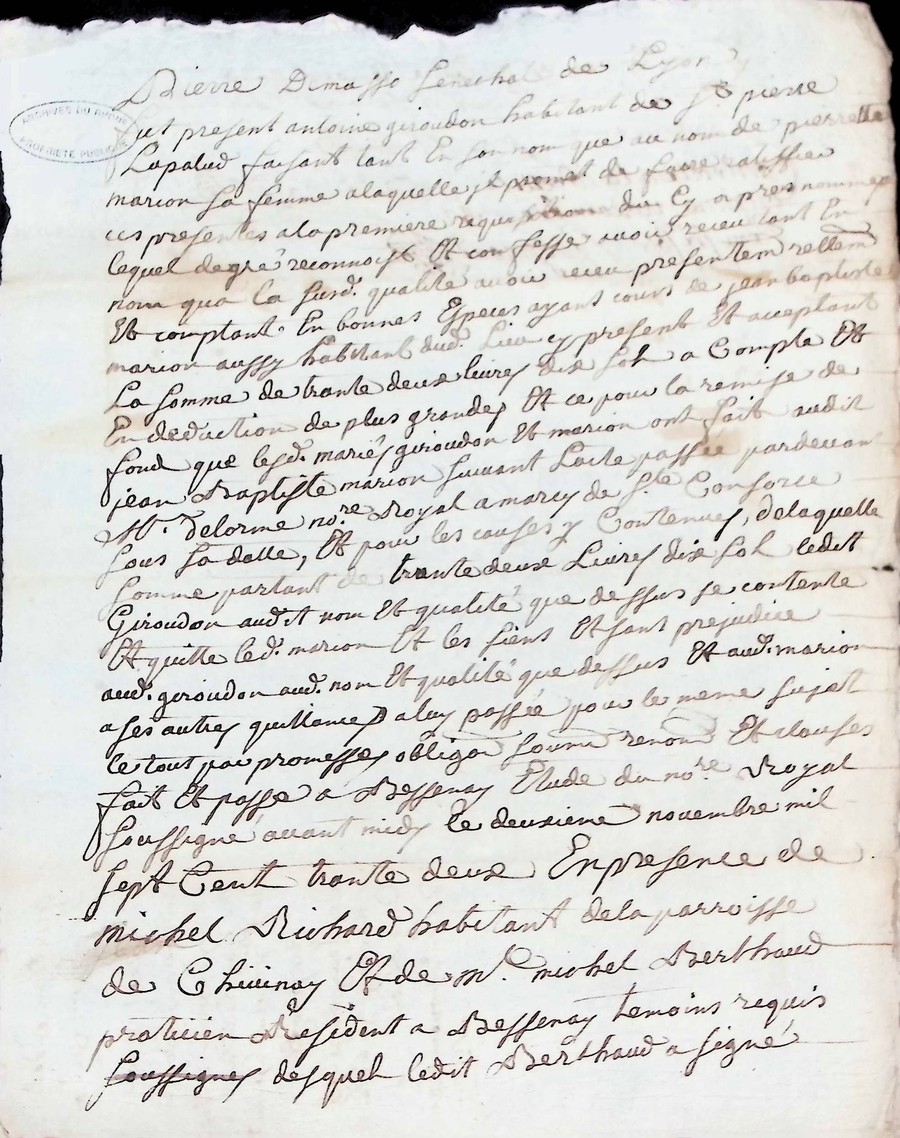 Pierre Demasso Senechal de Lyon
ARCHIVES DU RHONE
PROPRIETE PUBLIQUE
fut present antoine giroudon habitant de St pierre
Lapalud faisant tant En son nom que au nom de pierrette
marion sa femme alaquelle jl promet de faire ratiffier
ces presentes alapremiere requisition du Cy apres nommé
lequel de gré reconnoist Et confesse avoir receu tant En
nom qua la susd. qualité avoir receu presentem reellem
Et comptant. En bonnes Especes ayant cours de jean baptiste
marion aussy habitant dud. Lieu cy present Et acceptant
La somme de trante deux livres dix sol a Compte Et
En deduction de plus grandes Et ce pour la remise de
fond que lesd. mariés giroudon Et marion ont fait audit
jean Baptiste marion suivant Lacte passée pardevant
Me. delorme nore. Royal a marcy de Ste Consorce
sous sa datte, Et pour les causes y Contenues, delaquelle
somme partant de trante deux Livres dix sol ledit
Giroudon audit nom Et qualité que dessus se contente
Et quitte led. marion Et les siens Et sans prejudice
aud. giroudon aud. nom Et qualité que dessus Et aud. marion
a ses autres quittances a luy passée pour le meme sujet
le tout par promesses obligon soumi renon Et clauses
fait Et passé a Bessenay Etude du nore. Royal
soussigné avant midy le deuxieme novembre mil
sept Cent trante deux En presence de
michel Richard habitant dela parroisse
de Chivinay Et de Me. michel Berthaud
praticien Resident a Bessenay temoins requis
soussignes desquel ledit Berthaud a signé